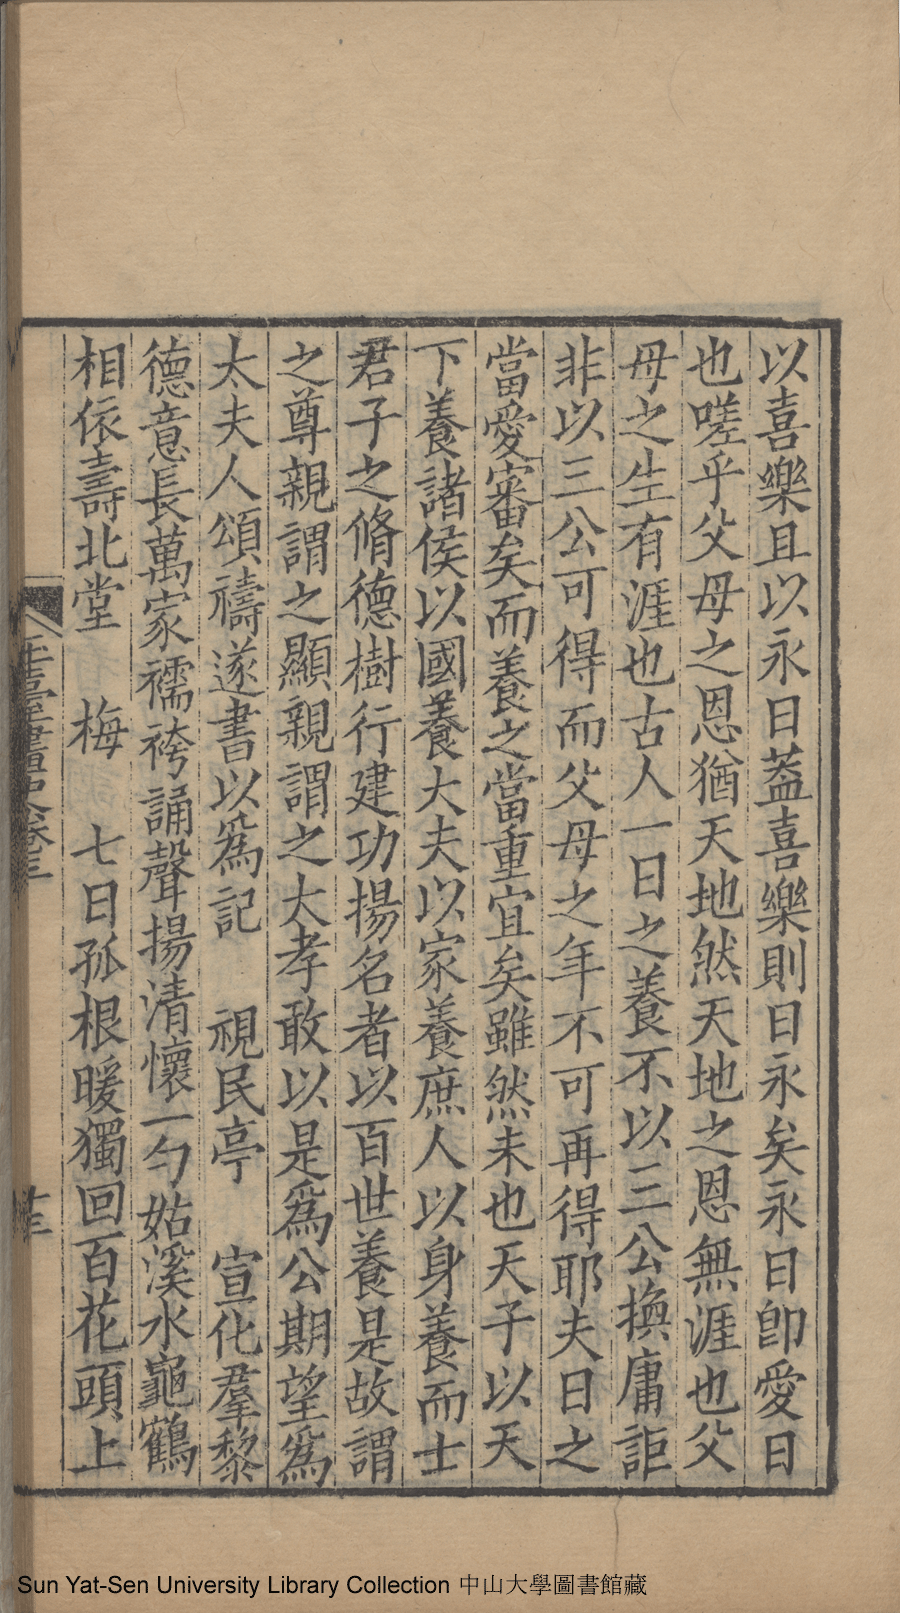 以喜樂且以永日葢喜樂則日永矣永日卽愛日
也嗟乎父母之恩猶天地然天地之恩無涯也父
母之生有涯也古人一日之養不以三公換庸詎
非以三公可得而父母之年不可再得耶夫日之
當愛審矣而養之當重宜矣雖然未也天子以天
下養諸侯以國養大夫以家養庶人以身養而士
君子之脩德樹行建功揚名者以百世養是故謂
之尊親謂之顯親謂之大孝敢以是爲公期望爲
太夫人頌禱遂書以爲記　視民亭　宣化羣黎
德意長萬家襦袴誦聲揚清懷一勺姑溪水龜鶴
相依壽北堂　梅　七日孤根暖獨回百花頭上
卷三
Sun Yat-Sen University Library Collection 中山大學圖書館藏